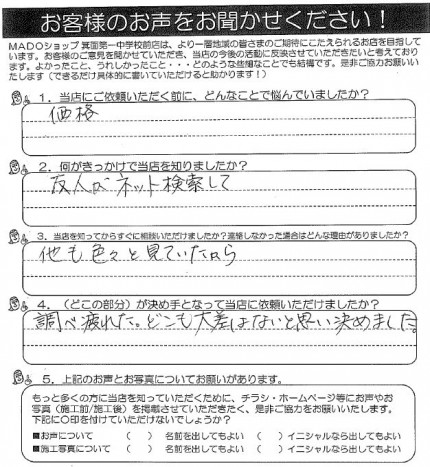 お客様のお声をお聞かせください！
MADOショップ 箕面第一中学校前店は、より一層地域の皆さまのご期待にこたえられるお店を目指して
います。お客様のご意見を聞かせていただき、当店の今後の活動に反映させていただきたいと考えており
ます。よかったこと、うれしかったこと・・・どのような些細なことでも結構です。是非ご協力お願いい
たします（できるだけ具体的に書いていただけると助かります！）
１．当店にご依頼いただく前に、どんなことで悩んでいましたか？
価格
２．何がきっかけで当店を知りましたか？
友人がネット検索して
３．当店を知ってからすぐに相談いただけましたか？連絡しなかった場合はどんな理由がありましたか？
他も色々と見ていたから
４．（どこの部分）が決め手となって当店に依頼いただけましたか？
調べ疲れた。どこも大差はないと思い決めました。
５．上記のお声とお写真についてお願いがあります。
もっと多くの方に当店を知っていただくために、チラシ・ホームページ等にお声やお
写真（施工前/施工後）を掲載させていただきたく、是非ご協力をお願いします。
下記に〇印を付けていただけないでしょうか？
■お声について （ ） 名前を出してもよい （ ）イニシャルなら出してもよい
■施工写真について （ ） 名前を出してもよい （ ）イニシャルなら出してもよい